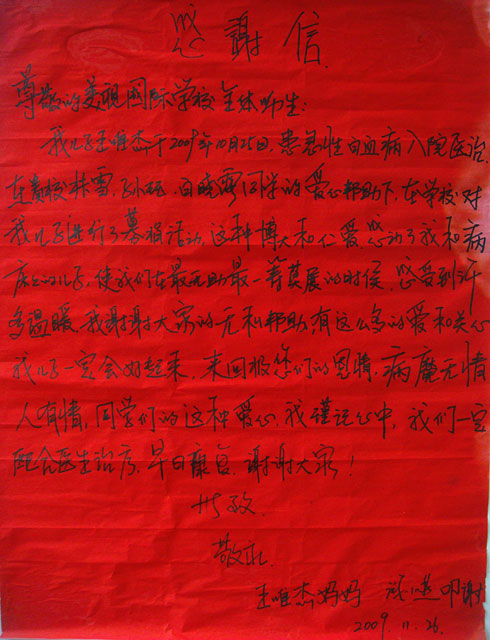 感謝信
尊敬的美视国际学校全体师生:
我儿子王唯杰于2009年10月25日,患急性白血病入院医治,
在贵校林雪,孙砡,白晓霽同学的爱心帮助下,在学校对
我儿子进行了募捐活动,这种博大和仁爱感动了我和病
床上的儿子,使我们在最无助最一筹莫展的时候,感受到许
多温暖,我谢谢大家的无私帮助,有这么多的爱和关心
我儿子一定会好起来,来回报您们的恩情,病魔无情
人有情,同学们的这种爱心,我谨记心中,我们一定
配合医生治疗,早日康复,谢谢大家!
此致
敬礼
王唯杰妈妈 叩谢
2009.11.26.